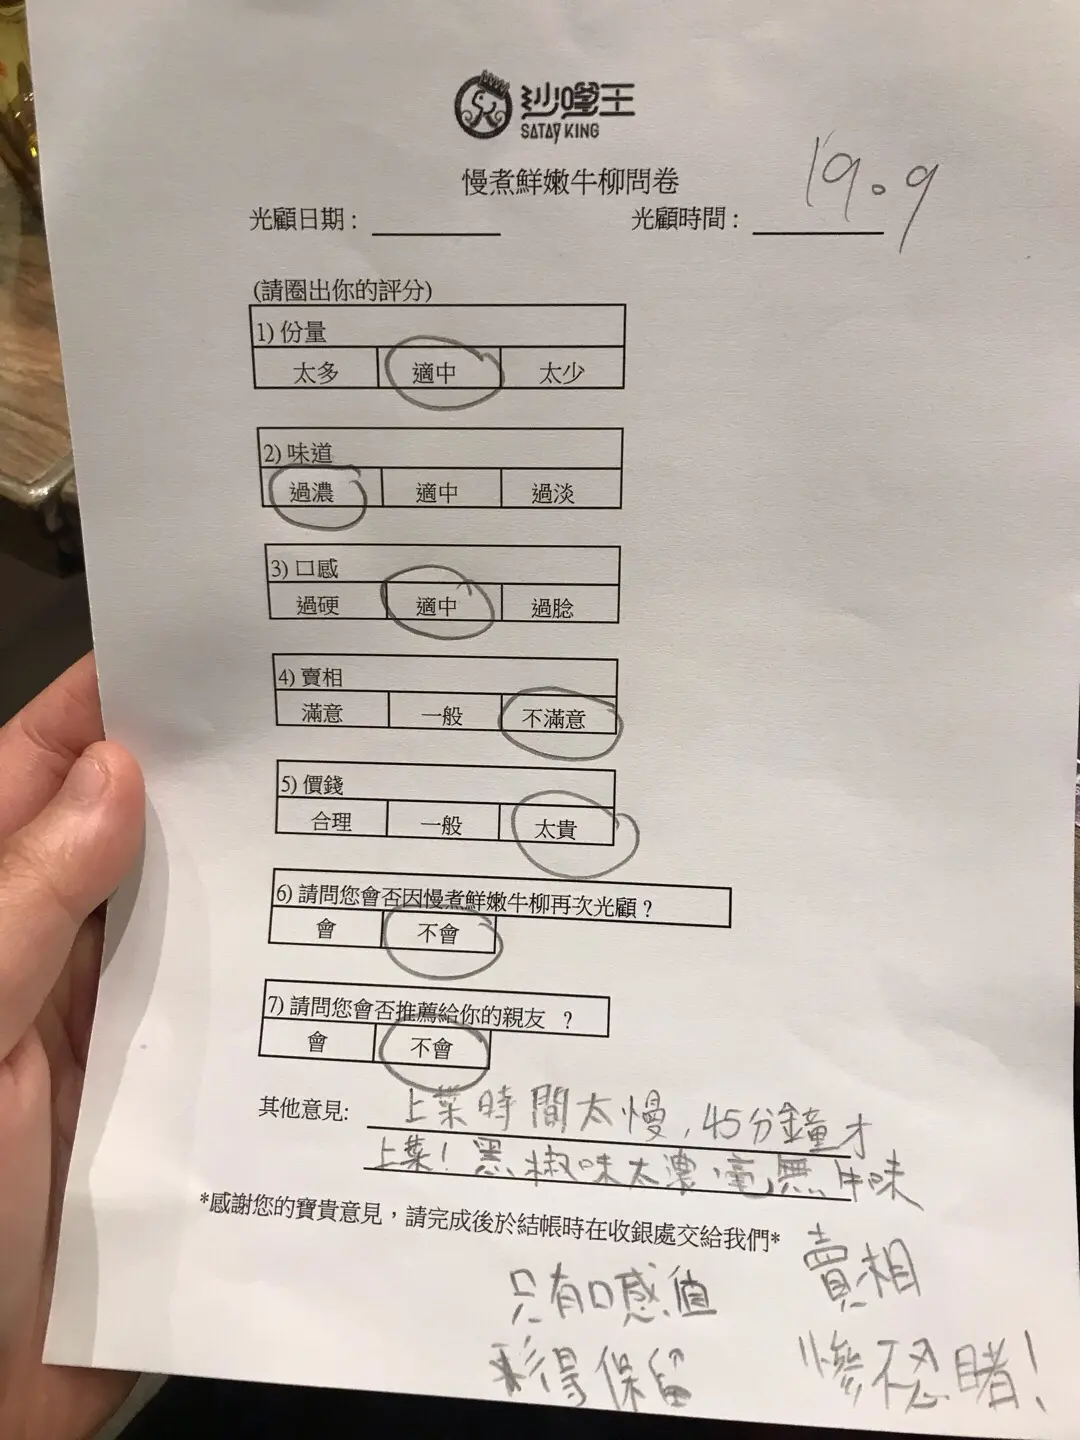 沙嗲王
SATAY KING
慢煮鮮嫩牛柳問卷
光顧日期：
光顧時間：
19.9
(請圈出你的評分)
1) 份量
太多 適中 太少
2) 味道
過濃 適中 過淡
3) 口感
過硬 適中 過腍
4) 賣相
滿意 一般 不滿意
5) 價錢
合理 一般 太貴
6) 請問您會否因慢煮鮮嫩牛柳再次光顧？
會 不會
7) 請問您會否推薦給你的親友 ？
會 不會
其他意見: 上菜時間太慢，45分鐘才
上菜！黑椒味太濃，毫無牛味
*感謝您的寶貴意見，請完成後於結帳時在收銀處交給我們*
只有口感值
得保留
賣相
慘不忍睹！